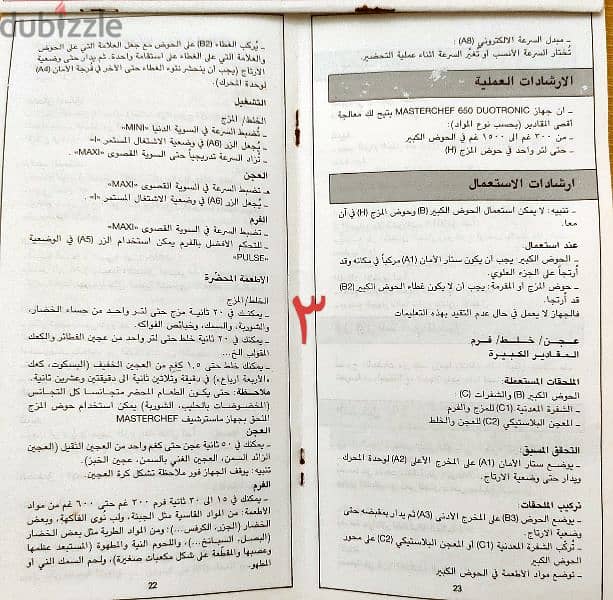 dubizzle
ـ مبدل السرعة الالكتروني (A8) :
تُختار السرعة الأنسب أو تُغيّر السرعة أثناء عملية التحضير.
الارشادات العملية
ـ ان جهاز MASTERCHEF 650 DUOTRONIC يتيح لك معالجة
أقصى المقادير (بحسب نوع المواد):
ـ من ٣٠٠ غم الى ١٥٠٠ غم في الحوض الكبير
ـ حتى لتر واحد في حوض المزج (H)
ارشادات الاستعمال
ـ تنبيه: لا يمكن استعمال الحوض الكبير (B) وحوض المزج (H) في آن
معا.
عند استعمال:
ـ الحوض الكبير يجب أن يكون ستار الأمان (A1) مركباً في مكانه وقد
أرتجاً على الجزء العلوي.
ـ حوض المزج أو المفرمة: يجب أن لا يكون غطاء الحوض الكبير (B2)
قد أرتجا.
فالجهاز لا يعمل في حال عدم التقيد بهذه التعليمات
عجن/ خلط/ فرم
المقادير الكبيرة
الملحقات المستعملة:
الحوض الكبير (B) والشفرات (C)
ـ الشفرة المعدنية (C1) للمزج والفرم
ـ المعجن البلاستيكي (C2) للعجن والخلط
التحقق المسبق:
ـ يوضع ستار الأمان (A1) على المخرج الأعلى (A2) لوحدة المحرك
ويدار حتى وضعية الارتاج.
تركيب الملحقات:
ـ يوضع الحوض (B3) على المخرج الأدنى (A3) ثم يدار بمقبضه حتى
وضعية الارتاج.
ـ تُركّب الشفرة المعدنية (C1) أو المعجن البلاستيكي (C2) على محور
الحوض الكبير
ـ توضع مواد الأطعمة في الحوض الكبير
23
ـ يُركب الغطاء (B2) على الحوض مع جعل العلامة التي على الحوض
والعلامة التي على الغطاء على استقامة واحدة. ثم يدار حتى وضعية
الارتاج (يجب أن ينحشر نتوء الغطاء حتى الآخر في فرجة الأمان (A4)
لوحدة المحرك).
التشغيل
الخلط/ المزج
ـ تُضبط السرعة في السوية الدنيا «MINI»
ـ يُجعل الزر (A6) في وضعية الاشتغال المستمر «I»
ـ تُزاد السرعة تدريجياً حتى السوية القصوى «MAXI»
العجن
ـ تضبط السرعة في السوية القصوى «MAXI»
ـ يُجعل الزر (A6) في وضعية الاشتغال المستمر «I».
الفرم
ـ تضبط السرعة في السوية القصوى «MAXI»
ـ للتحكم الأفضل بالفرم يمكن استخدام الزر (A5) في الوضعية
«PULSE»
الأطعمة المحضّرة
الخلط/المزج
ـ يمكنك في ٢٠ ثانية مزج حتى لتر واحد من حساء الخضار،
والشوربة، والسمك، وخبائص الفواكه.
ـ يمكنك في ٢٠ ثانية خلط حتى لتر واحد من عجين الفطائر والكعك
المقولب الخ...
ـ يمكنك خلط حتى ١,٥ كغم من العجين الخفيف (البسكوت، كعك
«الأربعة أرباع») في دقيقة وثلاثين ثانية الى دقيقتين وعشرين ثانية.
ملاحظة: حتى يكون الطعام المحضر متجانسا كل التجانس
(المخفوضات بالحليب، الشوربة) يمكن استخدام حوض المزج
الملحق بجهاز ماسترشيف MASTERCHEF
العجن
ـ يمكنك في ٥٠ ثانية عجن حتى كغم واحد من العجين الثقيل (العجين
الزائد السمن، العجين الغني بالسمن، عجين الخبز).
تنبيه: يوقف الجهاز فور ملاحظة تشكل كرة العجين.
الفرم
ـ يمكنك في ١٥ الى ٣٠ ثانية فرم ٣٠٠ غم حتى ٦٠٠ غم من مواد
الأطعمة: من المواد القاسية مثل الجبنة، ولب نوى الفاكهة، وبعض
الخضار (الجزر، الكرفس...): ومن المواد الطرية مثل بعض الخضار
(البصل، السبانخ...)، واللحوم النية والمطهوة (المستبعد عظمها
وعصبها والمقطعة على شكل مكعبات صغيرة)، ولحم السمك الني أو
المطهو.
22
٣